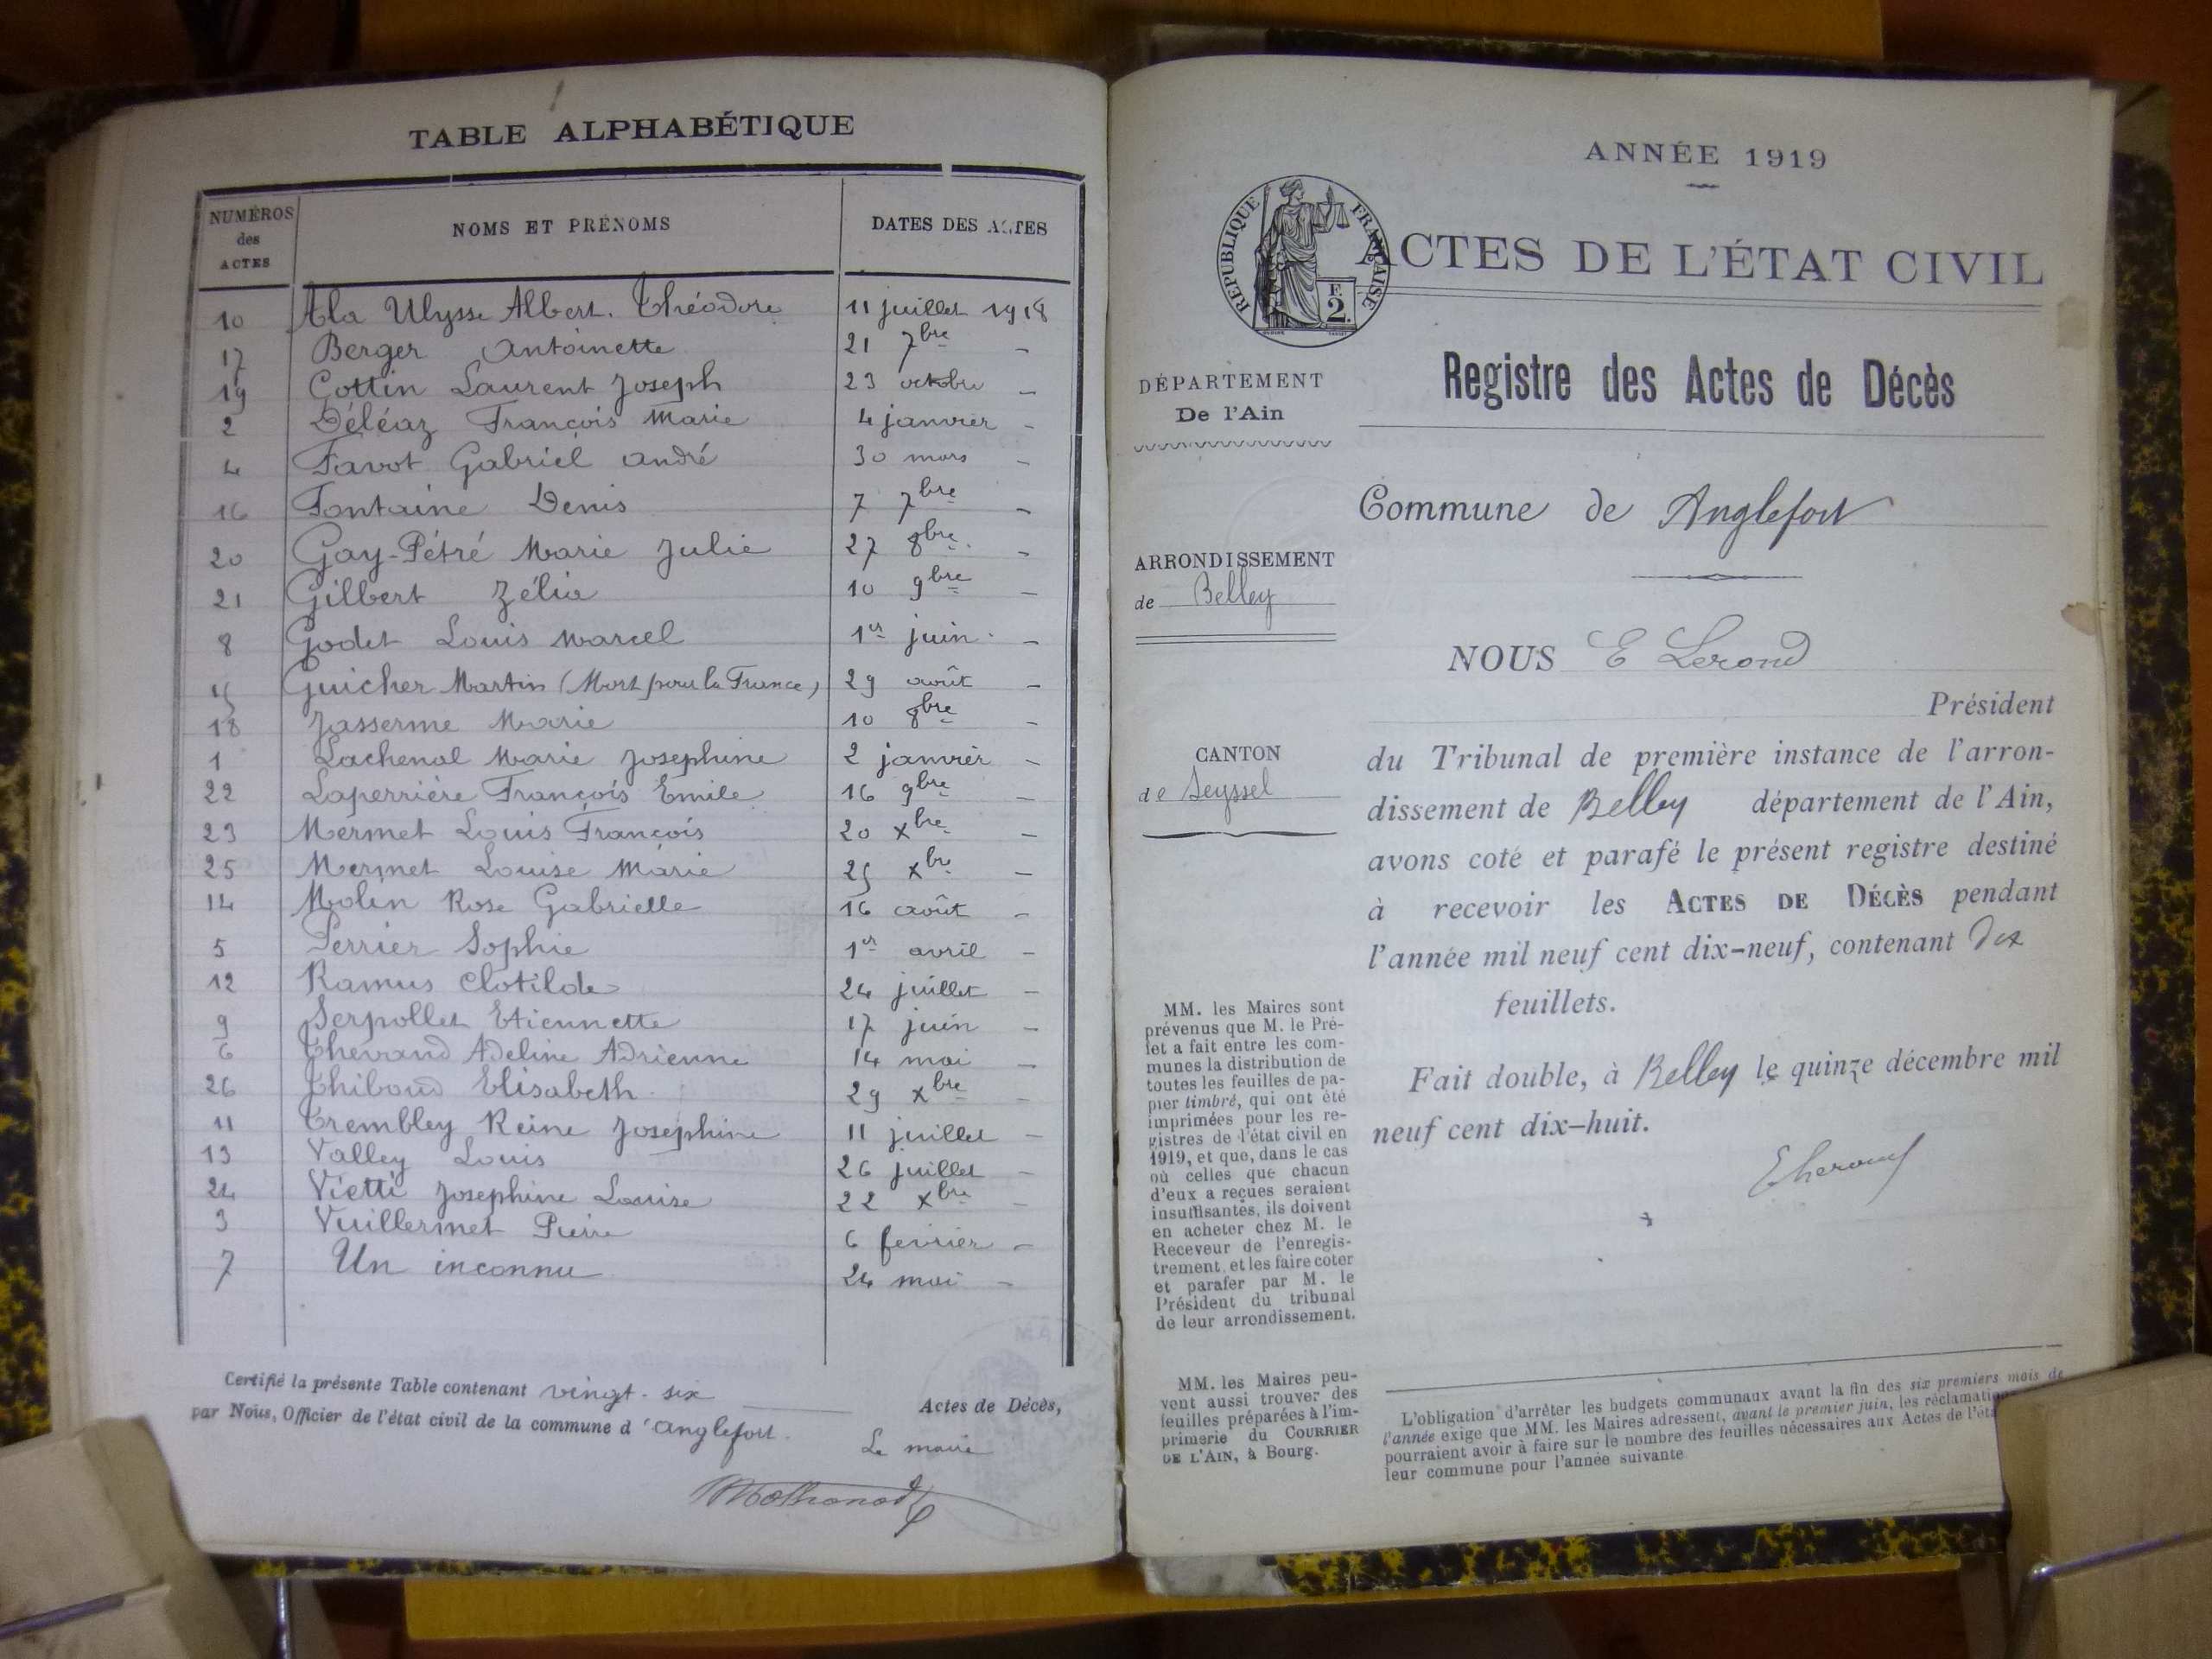 TABLE ALPHABÉTIQUE
NUMÉROS des ACTES NOMS ET PRÉNOMS DATES DES ACTES
10 Ala Ulysse Albert. Théodore 11 juillet 1918
17 Berger Antoinette 21 7bre –
19 Cottin Laurent Joseph 23 octobre –
2 Déléaz François Marie 4 janvier –
4 Favot Gabriel André 30 mars –
16 Fontaine Denis 7 7bre –
20 Gay-Pétré Marie Julie 27 8bre. –
21 Gilbert Zélia 10 9bre –
8 Godet Louis Marcel 1er juin. –
15 Guicher Martin (Mort pour la France) 29 août –
18 Jasserme Marie 10 8bre –
1 Lachenal Marie Josephine 2 janvier –
22 Laperrière François Emile 16 9bre –
23 Mermet Louis François 20 xbre –
25 Mermet Louise Marie 25 xbre –
14 Molin Rose Gabrielle 16 août –
5 Perrier Sophie 1er avril –
12 Ramus Clotilde 24 juillet –
9 Serpollet Etiennette 17 juin –
6 Thevrand Adeline Adrienne 14 mai –
26 Thiboud Elisabeth 29 xbre –
11 Trembley Reine Josephine 11 juillet –
13 Valley Louis 26 juillet –
24 Vietti Josephine Louise 22 xbre –
3 Vuillermet Pierre 6 fevrier –
7 Un inconnu 24 mai –
Certifié la présente Table contenant vingt-six Actes de Décès,
par Nous, Officier de l'état civil de la commune d'Anglefort.
Le maire
ANNÉE 1919
RÉPUBLIQUE FRANÇAISE
F. 2.
ACTES DE L'ÉTAT CIVIL
DÉPARTEMENT
De l'Ain
Registre des Actes de Décès
Commune de Anglefort
ARRONDISSEMENT
de Belley
NOUS E Lerond
Président
CANTON
de Seyssel
du Tribunal de première instance de l'arron-
dissement de Belley département de l'Ain,
avons coté et parafé le présent registre destiné
à recevoir les ACTES DE DÉCÈS pendant
l'année mil neuf cent dix-neuf, contenant dix
feuillets.
Fait double, à Belley le quinze décembre mil
neuf cent dix-huit.
MM. les Maires sont
prévenus que M. le Pré-
fet a fait entre les com-
munes la distribution de
toutes les feuilles de pa-
pier timbré, qui ont été
imprimées pour les re-
gistres de l'état civil en
1919, et que, dans le cas
où celles que chacun
d'eux a reçues seraient
insuffisantes, ils doivent
en acheter chez M. le
Receveur de l'enregis-
trement, et les faire coter
et parafer par M. le
Président du tribunal
de leur arrondissement.
MM. les Maires peu-
vent aussi trouver des
feuilles préparées à l'im-
primerie du COURRIER
DE L'AIN, à Bourg.
L'obligation d'arrêter les budgets communaux avant la fin des six premiers mois de
l'année exige que MM. les Maires adressent, avant le premier juin, les
pourraient avoir à faire sur le nombre des feuilles nécessaires aux Actes de
leur commune pour l'année suivante